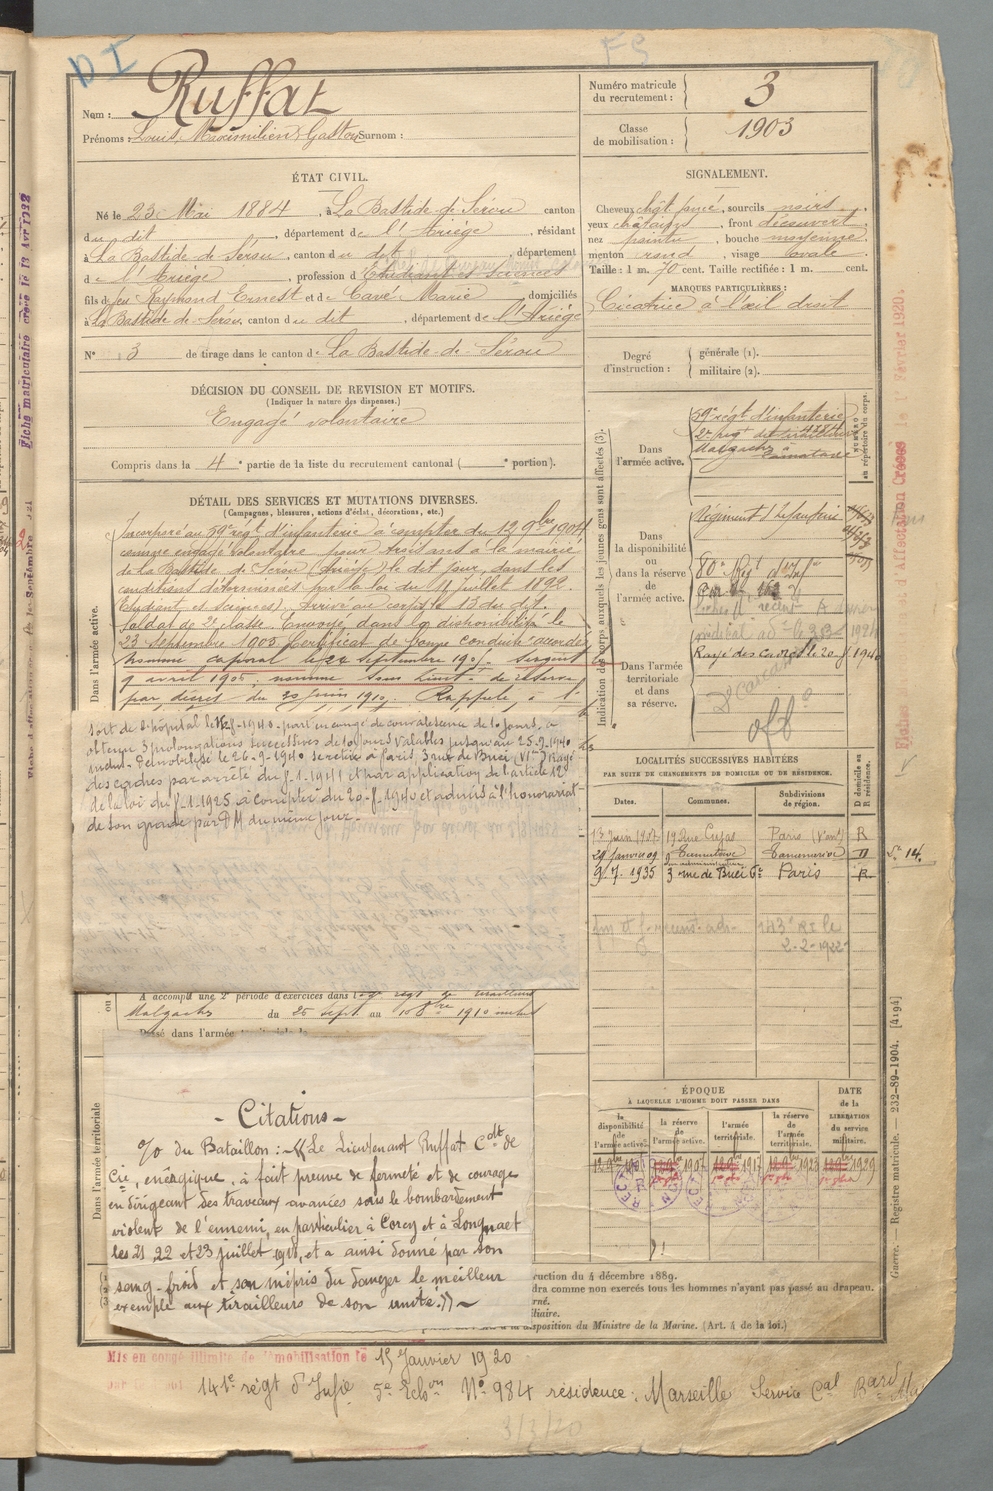 D I
F S
Nom : Ruffat
Prénoms : Louis, Maximilien, Gaston Surnom :
Numéro matricule du recrutement : 3
Classe de mobilisation : 1903
ÉTAT CIVIL.
Né le 23 Mai 1884, à La Bastide de Sérou canton
du dit, département de l'Ariège, résidant
à La Bastide de Sérou, canton du dit, département
de l'Ariège, profession d'Etudiant ès Sciences
fils de feu Raymond Ernest et de Cavé Marie domiciliés
à La Bastide de Sérou, canton du dit, département de l'Ariège
N° 3 de tirage dans le canton de La Bastide-de-Sérou
SIGNALEMENT.
Cheveux chât foncé, sourcils noirs
yeux châtains, front découvert
nez pointu, bouche moyenne
menton rond, visage ovale
Taille : 1 m. 70 cent. Taille rectifiée : 1 m. cent.
MARQUES PARTICULIÈRES :
Cicatrice à l'œil droit
Degré d'instruction : générale (1).
militaire (2).
DÉCISION DU CONSEIL DE REVISION ET MOTIFS.
(Indiquer la nature des dispenses.)
Engagé volontaire
Compris dans la 4e partie de la liste du recrutement cantonal ( e portion).
DÉTAIL DES SERVICES ET MUTATIONS DIVERSES.
(Campagnes, blessures, actions d'éclat, décorations, etc.)
Dans l'armée active.
Incorporé au 59e régt d'infanterie à compter du 12 9bre 1904
comme engagé volontaire pour trois ans à la mairie
de la Bastide de Sérou (Ariège) le dit jour, dans les
conditions d'
par la loi du 11 Juillet 1892
(Etudiant ès sciences). Arrivé au corps le 13 du dit.
Soldat de 2e classe. Envoyé dans la disponibilité le
23 Septembre 1905 Certificat de bonne conduite accordé
Nommé caporal le 24 Septembre 190 . Sergent
9 avril 1905. nommé sous Lieut- de réserve
par décret du 20 Juin 1910. Rappelé à l'
sort de l'hôpital le
-1940. part en congé de convalescence de 10 jours, a
obtenu 3 prolongations successives de 10 jours valables jusqu'au 25-9-1940
inclus. Démobilisé le 26-9-1940 se retire à Paris, 3 rue de Buci (VIe) Rayé
des cadres par arrêté du
-1-1941 et par application de l'article 12
de la loi du 8-1-1925 à compter du 20-8-1940 et admis à l'honorariat
de son grade par DM du même jour.-
A accompli une 2e période d'exercices dans
régt de tirailleurs
Malgaches du 26 sept au
8bre 1910
Passé dans l'armée territoriale le
Dans l'armée territoriale
- Citations -
O/o du Bataillon : « Le Lieutenant Ruffat Cdt de
Cie, énergique, a fait preuve de fermeté et de courage
en dirigeant des travaux avancés sous le bombardement
violent de l'ennemi, en particulier à Corcy et à Longpaet
les 21 22 et 23 juillet 1918, et a ainsi donné par son
sang-froid et son mépris du danger le meilleur
exemple aux tirailleurs de son unité. » ~
Indication des corps auxquels les jeunes gens sont affectés (3).
Dans l'armée active.
59e régt d'infanterie
2e régt de tirailleurs
Malgaches à Tamatave
NUMÉRO au répertoire du corps.
Dans la disponibilité ou dans la réserve de l'armée active.
Régiment d'Infanterie
80e Régt d'Infie
Dans l'armée territoriale et dans sa réserve.
Rayé des cadres le 20-8-1940
LOCALITÉS SUCCESSIVES HABITÉES
PAR SUITE DE CHANGEMENTS DE DOMICILE OU DE RÉSIDENCE.
Dates. Communes. Subdivisions de région. D domicile ou R résidence.
13 Juin 1907 19 Rue Cujas Paris (Vart) R
29 Janvier 09 Tamatave Tananarive D
9.7.1935 3 rue de Buci 6e Paris R
143e RI le
2-2-1922
ÉPOQUE
À LAQUELLE L'HOMME DOIT PASSER DANS
la disponibilité de l'armée active. la réserve de l'armée active. l'armée territoriale. la réserve de l'armée territoriale. DATE de la LIBÉRATION du service militaire.
1907 1917 1923 1929
ruction du 4 décembre 1889.
dra comme non exercés tous les hommes n'ayant pas passé au drapeau.
rné.
iliaire.
disposition du Ministre de la Marine. (Art. 4 de la loi.)
Guerre. — Registre matricule. — 232-89-1904. [4194]
Mis en congé illimité de démobilisation le 15 Janvier 1920
141e régt d'Infie 5e Echon No 984 résidence : Marseille Service Cal
3/3/20
Fiche matriculaire créée le 13 Avr 1938
Fiches et d'Affectation Créées le 1er Février 1920.